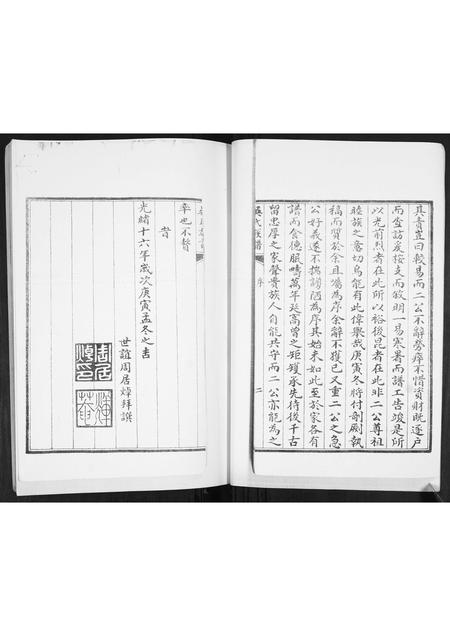 其責豈曰較易而二公不辭勞瘁不惜資財既逐户
而查訪爰按支而敘明一易寒暑而譜工告竣是所
以光前烈者在此所以裕後昆者在此非二公尊祖
睦族之意切烏能有此偉舉哉庚寅冬將付剞劂執
稿而質於余且囑為序余辭不獲已又重二公之急
公好義遂不揣譾陋為序其始末如此至於家各有
譜而食德服疇萬年延高曾之矩矱承先待後千古
留忠厚之家聲貴族人自能共守而二公亦能為之
吳氏族譜 序 二
幸也不贅
旹
光緒十六年歲次庚寅孟冬之吉
世誼周居焯拜譔